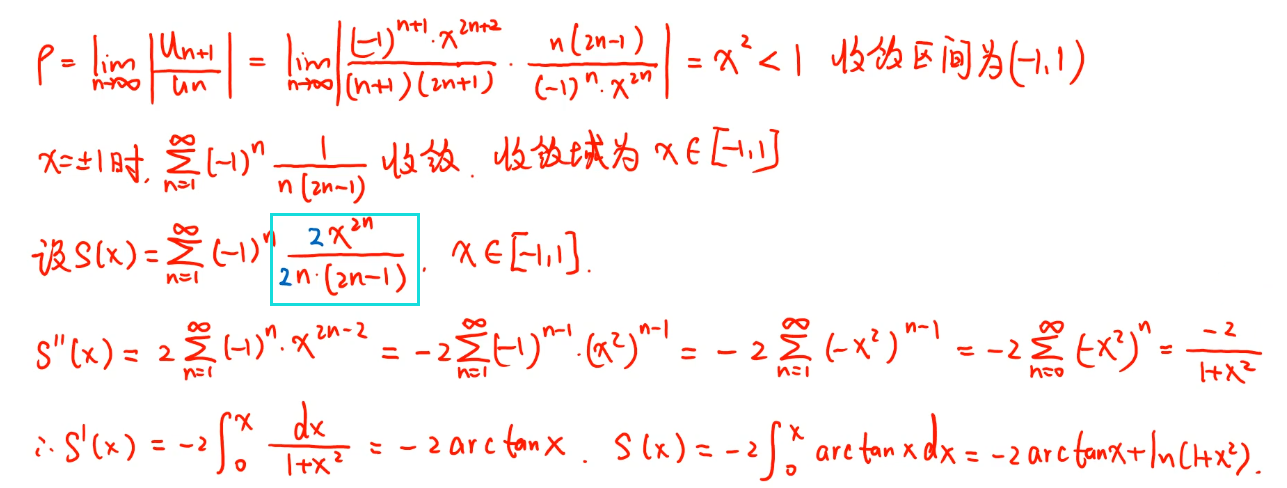 ρ = lim_{n→∞} |U_{n+1}/U_n| = lim_{n→∞} |((-1)^{n+1}·x^{2n+2})/((n+1)(2n+1)) · (n(2n-1))/((-1)^n·x^{2n})| = x² < 1 收敛区间为(-1,1)
x=±1时, ∑_{n=1}^{∞} (-1)^n 1/(n(2n-1)) 收敛. 收敛域为 x∈[-1,1]
设S(x) = ∑_{n=1}^{∞} (-1)^n (2x^{2n})/(2n·(2n-1)). x∈[-1,1].
S''(x) = 2∑_{n=1}^{∞} (-1)^n·x^{2n-2} = -2∑_{n=1}^{∞} (-1)^{n-1}·(x²)^{n-1} = -2∑_{n=1}^{∞} (-x²)^{n-1} = -2∑_{n=0}^{∞} (-x²)^n = -2/(1+x²)
∴S'(x) = -2∫_0^x dx/(1+x²) = -2arctanx. S(x) = -2∫_0^x arctanxdx = -2arctanx+ln(1+x²).